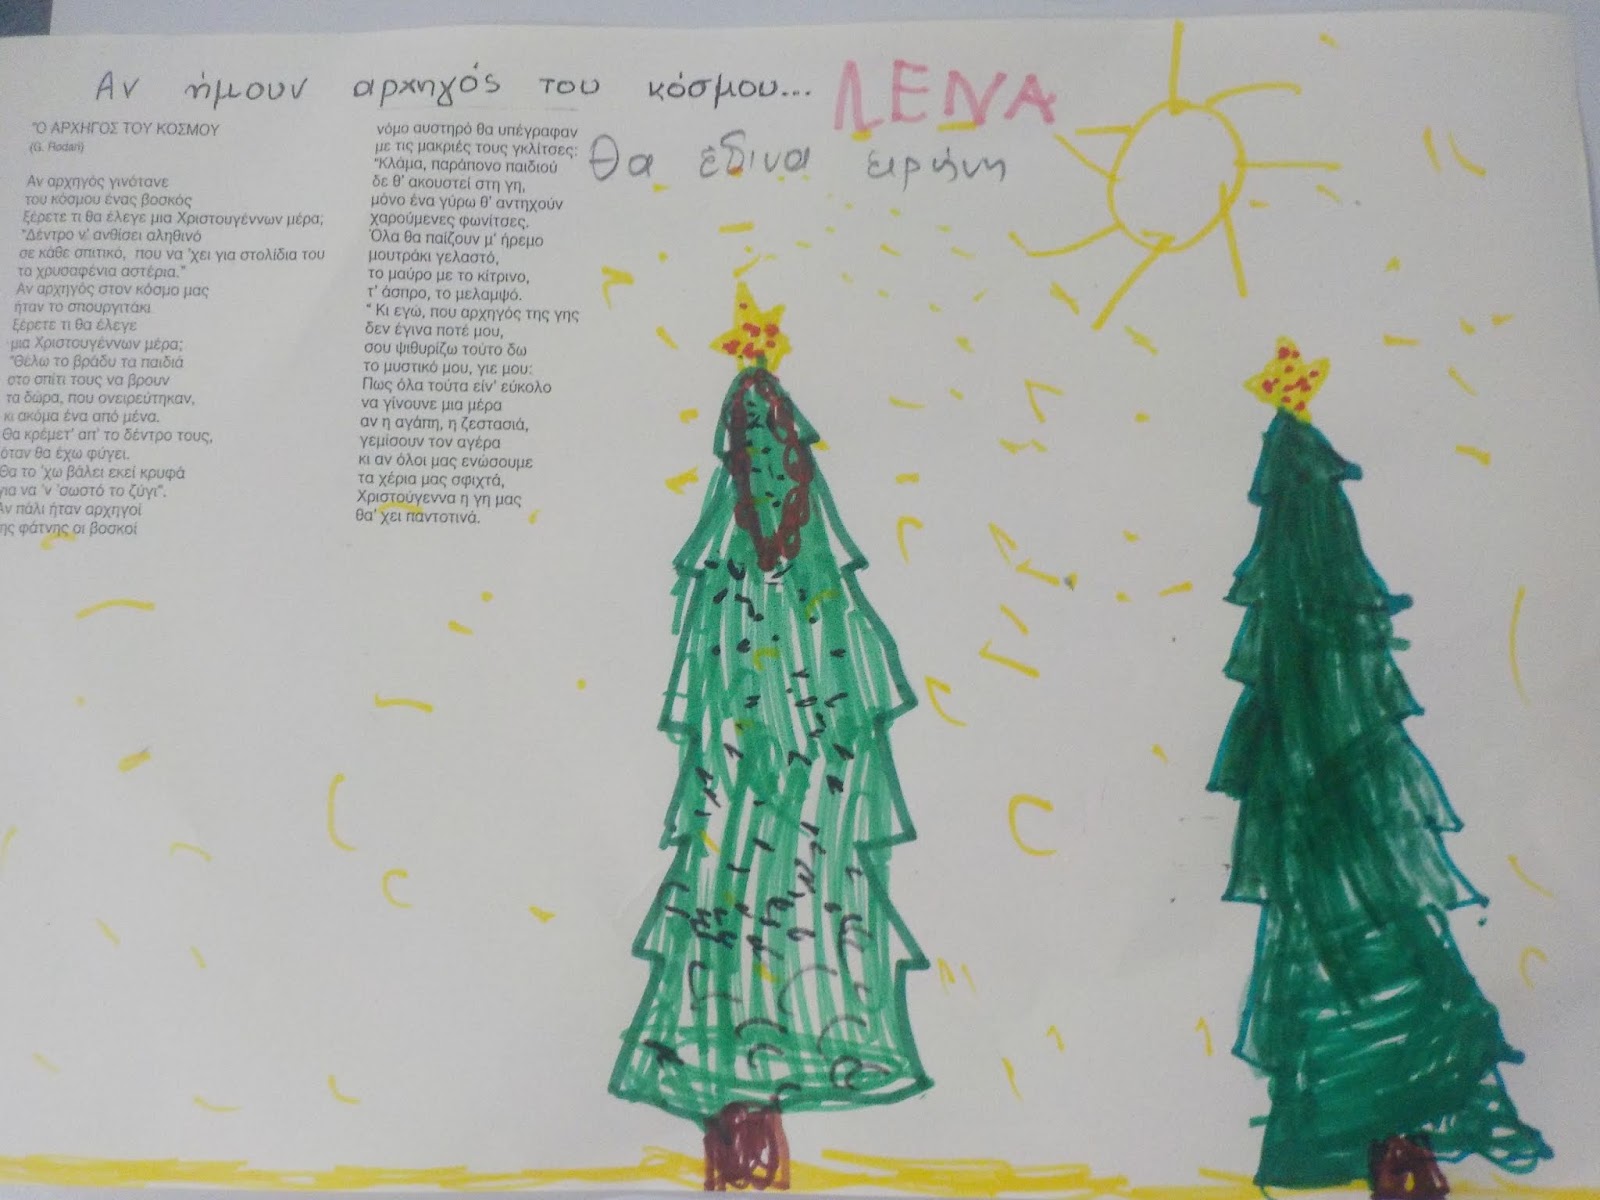 Αν ήμουν αρχηγός του κόσμου...
ΛΕΝΑ
θα έδινα ειρήνη
"Ο ΑΡΧΗΓΟΣ ΤΟΥ ΚΟΣΜΟΥ
(G. Rodari)
Αν αρχηγός γινότανε
του κόσμου ένας βοσκός
ξέρετε τι θα έλεγε μια Χριστουγέννων μέρα;
"Δέντρο ν' ανθίσει αληθινό
σε κάθε σπιτικό, που να 'χει για στολίδια του
τα χρυσαφένια αστέρια."
Αν αρχηγός στον κόσμο μας
ήταν το σπουργιτάκι
ξέρετε τι θα έλεγε
μια Χριστουγέννων μέρα;
"Θέλω το βράδυ τα παιδιά
στο σπίτι τους να βρουν
τα δώρα, που ονειρεύτηκαν,
κι ακόμα ένα από μένα.
Θα κρέμετ' απ' το δέντρο τους,
όταν θα έχω φύγει.
Θα το 'χω βάλει εκεί κρυφά
για να 'ν 'σωστό το ζύγι".
Αν πάλι ήταν αρχηγοί
ης φάτνης οι βοσκοί
νόμο αυστηρό θα υπέγραφαν
με τις μακριές τους γκλίτσες:
"Κλάμα, παράπονο παιδιού
δε θ' ακουστεί στη γη,
μόνο ένα γύρω θ' αντηχούν
χαρούμενες φωνίτσες.
Όλα θα παίζουν μ' ήρεμο
μουτράκι γελαστό,
το μαύρο με το κίτρινο,
τ' άσπρο, το μελαμψό.
" Κι εγώ, που αρχηγός της γης
δεν έγινα ποτέ μου,
σου ψιθυρίζω τούτο δω
το μυστικό μου, γιε μου:
Πως όλα τούτα είν' εύκολο
να γίνουνε μια μέρα
αν η αγάπη, η ζεστασιά,
γεμίσουν τον αγέρα
κι αν όλοι μας ενώσουμε
τα χέρια μας σφιχτά,
Χριστούγεννα η γη μας
θα' χει παντοτινά.